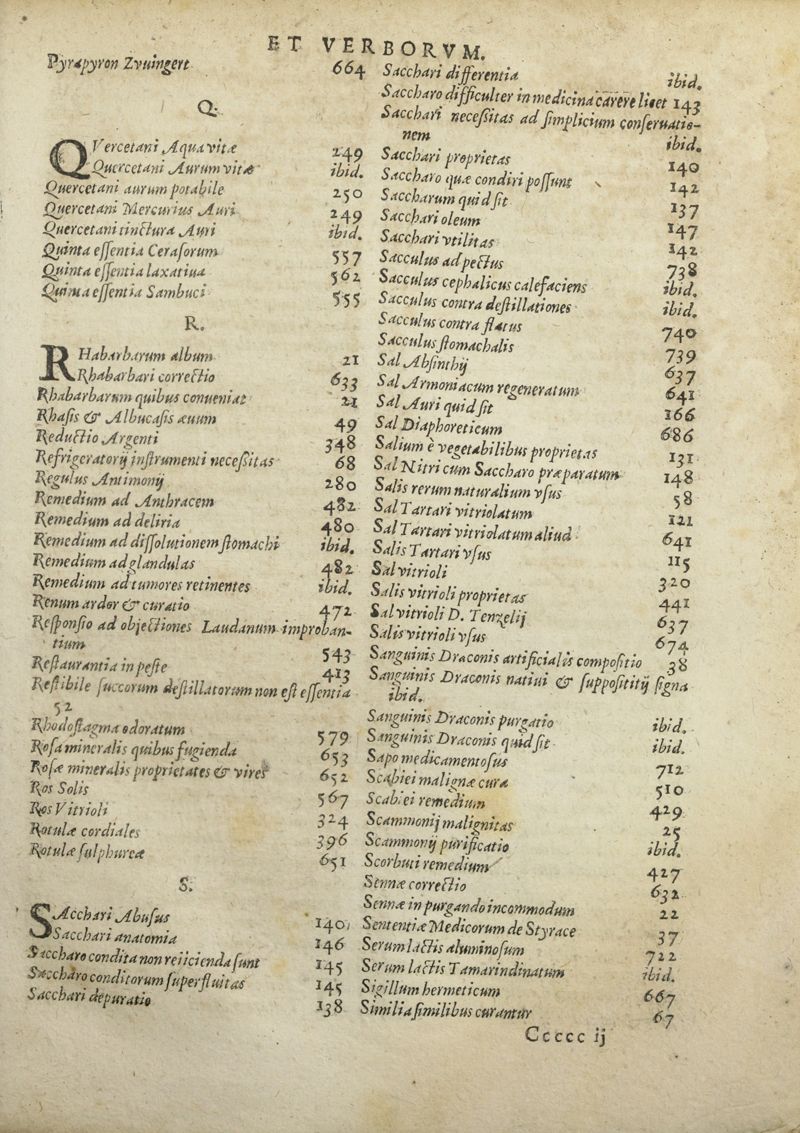 ET VERBORVM.
Pyrapyron Zvuingert 664
Q.
QVercetani Aqua vitæ 249
Quercetani Aurum vitæ ibid.
Quercetani aurum potabile 250
Quercetani Mercurius Auri 249
Quercetani tinctura Auri ibid.
Quinta eſſentia Ceraſorum 557
Quinta eſſentia laxatiua 562
Quinta eſſentia Sambuci 555
R.
RHabarbarum album 21
Rhabarbari correctio 633
Rhabarbarum quibus conueniat 21
Rhaſis & Albucaſis æuum 49
Reductio Argenti 348
Refrigeratorij inſtrumenti neceſſitas 68
Regulus Antimonij 280
Remedium ad Anthracem 482
Remedium ad deliria 480
Remedium ad diſſolutionem ſtomachi ibid.
Remedium ad glandulas 482
Remedium ad tumores retinentes ibid.
Renum ardor & curatio 472
Reſponſio ad objectiones Laudanum improban-
tium 543
Reſtaurantia in peſte 413
Reſtibile ſuccorum deſtillatorum non eſt eſſentia
52
Rhodoſtagma odoratum 579
Roſa mineralis quibus fugienda 653
Roſæ mineralis proprietates & vires 652
Ros Solis 567
Ros Vitrioli 324
Rotulæ cordiales 396
Rotulæ ſulphureæ 651
S.
SAcchari Abuſus 140
Sacchari anatomia 146
Saccharo condita non reiicienda ſunt 145
Saccharo conditorum ſuperfluitas 145
Sacchari depuratio 138
Sacchari differentia ibid.
Saccharo difficulter in medicina carere licet 143
Sacchari neceſſitas ad ſimplicium conſeruatio-
nem ibid.
Sacchari proprietas 140
Saccharo quæ condiri poſſunt 142
Saccharum quid ſit 137
Sacchari oleum 147
Sacchari vtilitas 142
Sacculus ad pectus 738
Sacculus cephalicus calefaciens ibid.
Sacculus contra deſtillationes ibid.
Sacculus contra flatus 740
Sacculus ſtomachalis 739
Sal Abſinthij 637
Sal Armoniacum regeneratum 641
Sal Auri quid ſit 166
Sal Diaphoreticum 686
Salium è vegetabilibus proprietas 131
Sal Nitri cum Saccharo præparatum 148
Salis rerum naturalium vſus 58
Sal Tartari vitriolatum 121
Sal Tartari vitriolatum aliud 641
Salis Tartari vſus 115
Sal vitrioli 320
Salis vitrioli proprietas 441
Sal vitrioli D. Tenzelij 637
Salis vitrioli vſus 674
Sanguinis Draconis artificialis compoſitio 38
Sanguinis Draconis natiui & ſuppoſititij ſigna
ibid.
Sanguinis Draconis purgatio ibid.
Sanguinis Draconis quid ſit ibid.
Sapo medicamentoſus 712
Scabiei malignæ cura 510
Scabiei remedium 429
Scammonij malignitas 25
Scammonij purificatio ibid.
Scorbuti remedium 427
Sennæ correctio 632
Sennæ in purgando incommodum 22
Sententiæ Medicorum de Styrace 37
Serum lactis aluminoſum 722
Serum lactis Tamarindinatum ibid.
Sigillum hermeticum 667
Similia ſimilibus curantur 67
Ccccc ij